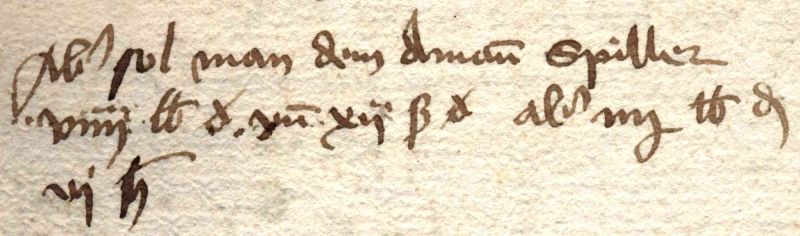 Ab' sol man dem Aman̄ Spiller
.viiij. lb d. vn̄ xij ß d al' iiij lb d
vj h